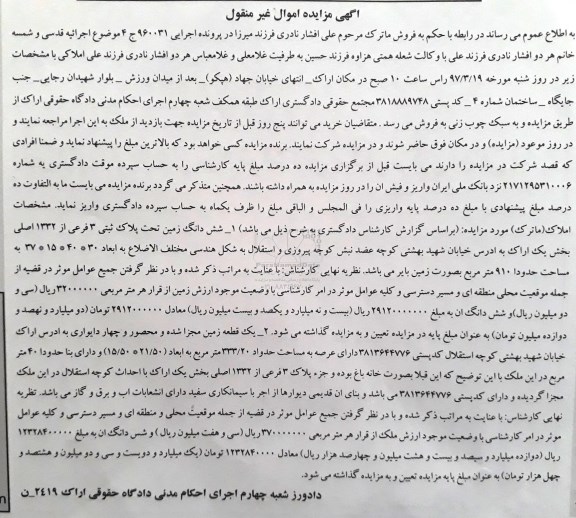 آگهی مزایده اموال غیر منقول
به اطلاع عموم می رساند در رابطه با حکم به فروش ماترک مرحوم علی افشار نادری فرزند میرزا در پرونده اجرایی ۹۶۰۰۳۱ ج ۴ موضوع اجرائیه قدسی و شمسه
خانم هر دو افشار نادری فرزند علی با وکالت شعله همتی هزاوه فرزند حسین به طرفیت غلامعلی و غلامعباس هر دو افشار نادری فرزند علی املاکی با مشخصات
زیر در روز شنبه مورخه ۹۷/۳/۱۹ راس ساعت ۱۰ صبح در مکان اراک _ انتهای خیابان جهاد (هپکو)_ بعد از میدان ورزش _ بلوار شهیدان رجایی_ جنب
جایگاه _ ساختمان شماره ۴ _ کد پستی ۳۸۱۸۸۸۹۷۴۸ مجتمع حقوقی دادگستری اراک طبقه همکف شعبه چهارم اجرای احکام مدنی دادگاه حقوقی اراک از
طریق مزایده و به سبک چوب زنی به فروش می رسد . متقاضیان خرید می توانند پنج روز قبل از تاریخ مزایده جهت بازدید از ملک به این اجرا مراجعه نمایند و
در روز موعود (مزایده) و در مکان فوق حاضر شوند و در مزایده شرکت نمایند. برنده مزایده کسی خواهد بود که بالاترین مبلغ را پیشنهاد نماید و ضمنا افرادی
که قصد شرکت در مزایده را دارند می بایست قبل از برگزاری مزایده ده درصد مبلغ پایه کارشناسی را به حساب سپرده موقت دادگستری به شماره
۲۱۷۱۲۹۵۳۱۰۰۰۶ نزد بانک ملی ایران واریز و فیش آن را در روز مزایده به همراه داشته باشند. همچنین متذکر می گردد برنده مزایده می بایست ما به التفاوت ده
درصد مبلغ پیشنهادی با مبلغ ده درصد پایه واریزی را فی المجلس و الباقی مبلغ را ظرف یکماه به حساب سپرده دادگستری واریز نماید. مشخصات
املاک(ماترک) مورد مزایده: (براساس گزارش کارشناس دادگستری به شرح ذیل می باشد) ۱_ شش دانگ زمین تحت پلاک ثبتی ۳ فرعی از ۱۳۳۲ اصلی
بخش یک اراک به ادرس خیابان شهید بهشتی کوچه عضد نبش کوچه پیروزی و استقلال به شکل هندسی مختلف الاضلاع به ابعاد ۳۰ * ۴۰ * ۱۵ * ۳۷ به
مساحت حدودا ۹۱۰ متر مربع بصورت زمین بایر می باشد. نظریه نهایی کارشناس: با عنایت به مراتب ذکر شده و با در نظر گرفتن جمیع عوامل موثر در قضیه از
جمله موقعیت محلی منطقه ای و مسیر دسترسی و کلیه عوامل موثر در امر کارشناسی با وضعیت موجود ارزش زمین از قرار هر متر مربعی ۳۲۰۰۰۰۰۰ ریال (سی و
دو میلیون ریال)و شش دانگ ان به مبلغ ۲۹۱۲۰۰۰۰۰۰۰ ریال (بیست و نه میلیارد و یکصد و بیست میلیون ریال) معادل ۲۹۱۲۰۰۰۰۰۰ تومان (دو میلیارد و نهصد و
دوازده میلیون تومان) به عنوان مبلغ پایه در مزایده تعیین و به مزایده گذاشته می شود. ۲_ یک قطعه زمین مجزا شده و محصور و چهار دیواری به ادرس اراک
خیابان شهید بهشتی کوچه استقلال کدپستی ۳۸۱۳۶۴۴۷۷۶ دارای عرصه به مساحت حدود ۳۳۳/۲۰ متر مربع به ابعاد (۲۱/۵۰ * ۱۵/۵۰) و دارای بنا حدودا ۴۰ متر
مربع در این ملک با این توضیح که این قبلا بصورت خانه باغ بوده و جزء پلاک ۳ فرعی از ۱۳۳۲ اصلی بخش یک اراک با احداث کوچه استقلال در این ملک
مجزا گردیده و دارای کدپستی ۳۸۱۳۶۴۴۷۷۶ می باشد و بنای ان قدیمی دیوارها از اجر با سیمانکاری سفید دارای انشعابات اب و برق و گاز می باشد. نظریه
نهایی کارشناس: با عنایت به مراتب ذکر شده و با در نظر گرفتن جمیع عوامل موثر در قضیه از جمله موقعیت محلی و منطقه ای و مسیر دسترسی و کلیه عوامل
موثر در امر کارشناسی با وضعیت موجود ارزش ملک از قرار هر متر مربعی ۳۷۰۰۰۰۰۰ ریال (سی و هفت میلیون ریال ) و شش دانگ ان به مبلغ ۱۲۳۲۸۴۰۰۰۰۰
ریال (دوازده میلیارد و سیصد و بیست و هشت میلیون و چهارصد هزار ریال) معادل ۱۲۳۲۸۴۰۰۰۰ تومان (یک میلیارد و دویست و سی و دو میلیون و هشتصد و
چهل هزار تومان) به عنوان مبلغ پایه مزایده تعیین و به مزایده گذاشته می شود.
دادورز شعبه چهارم اجرای احکام مدنی دادگاه حقوقی اراک ۲۴۱۹_ن